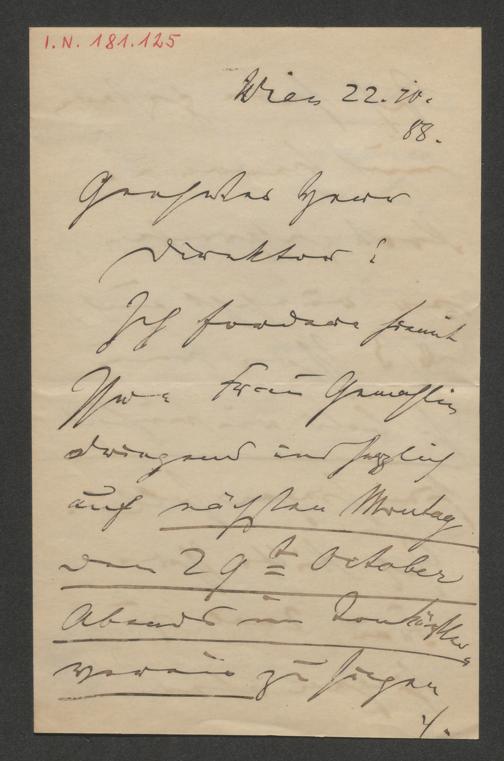 I. N. 181.125
Wien 22.10.
88.
Geehrtes Herr
Direktor!
Ich fordere hiemit
Ihre Frau Gemahlin
dringend und herzlich
auf nächsten Montag
den 29t October
Abends im Tonkünstler
verein zu singen